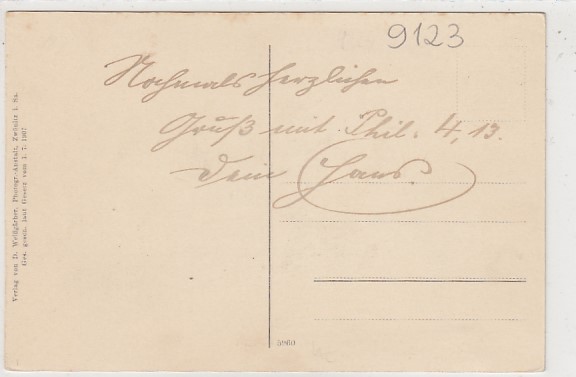 9123
Nochmals herzlichen
Gruß mit Phil. 4, 13.
Dein Hans.
Verlag von D. Weißgärber, Photogr.-Anstalt, Zwönitz i. Sa.
Ges. gesch. laut Gesetz vom 1. 7. 1907
5960